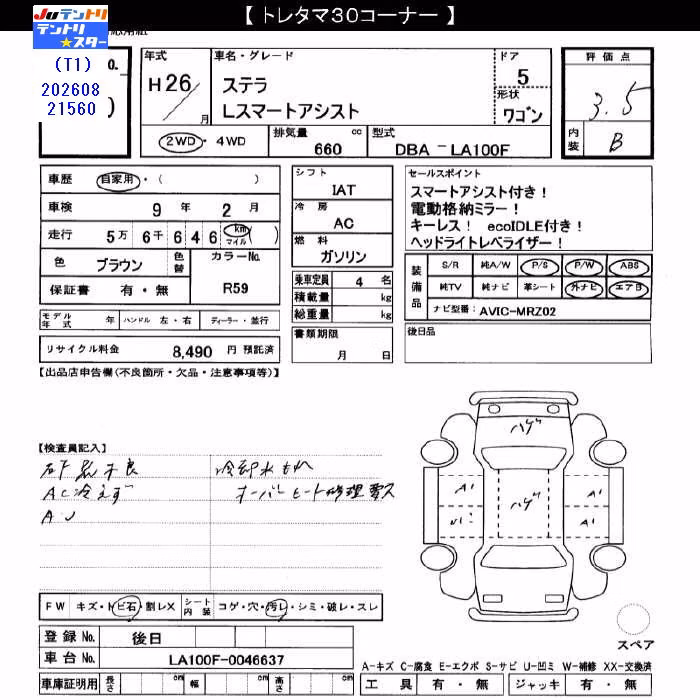 【 トレタマ30コーナー 】
JU テントリ
テントリ★スター
(T1)
202608
21560
O.
年式 H26/月
車名・グレード ステラ Lスマートアシスト
ドア 5
形状 ワゴン
評価点 3.5
内装 B
2WD・4WD
排気量 660 cc
型式 DBA-LA100F
車歴 自家用・( )
車検 9年 2月
走行 5万 6千 6 4 6 km マイル ( )
色 ブラウン 色替 カラーNo. R59
保証書 有・無
モデル年式 年 ハンドル 左・右 ディーラー・並行
リサイクル料金 8,490 円 預託済
シフト IAT
冷房 AC
燃料 ガソリン
乗車定員 4 名
積載量 kg
総重量 kg
書類期限 月 日
セールスポイント
スマートアシスト付き!
電動格納ミラー!
キーレス! ecoIDLE付き!
ヘッドライトレベライザー!
装備品 S/R 純A/W P/S P/W ABS
純TV 純ナビ 革シート 外ナビ エアB
ナビ型番: AVIC-MRZ02
後日品
【出品店申告欄(不良箇所・欠品・注意事項等)】
【検査員記入】
冷却水もれ
AC冷えず オーバーヒート修理要ス
ハゲ
A1 A1
ハゲ
A1
FW キズ・トビ石・割レX シート内装 コゲ・穴・汚レ・シミ・破レ・スレ
登録No. 後日
車台No. LA100F-0046637
車庫証明用 長さ cm 幅 cm 高さ cm
スペア
A-キズ C-腐食 E-エクボ S-サビ U-凹ミ W-補修 XX-交換済
工具 有・無 ジャッキ 有・無